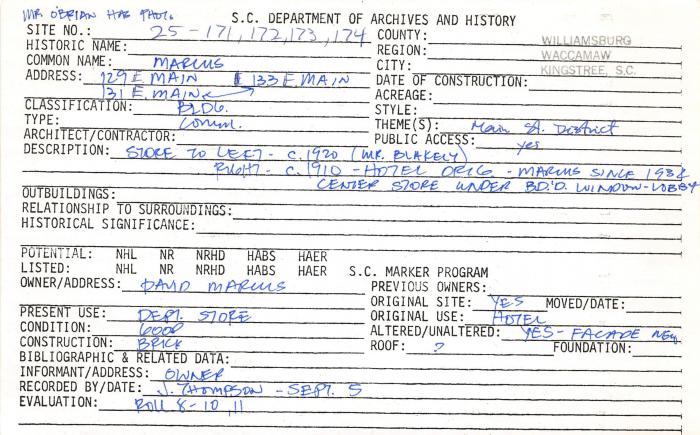 MR. O'BRIAN HAS PHOTO.
S.C. DEPARTMENT OF ARCHIVES AND HISTORY
SITE NO.: 25-171,172,173,174 COUNTY: WILLIAMSBURG
HISTORIC NAME: REGION: WACCAMAW
COMMON NAME: MARCUS CITY: KINGSTREE, S.C.
ADDRESS: 129 E. MAIN & 133 E. MAIN DATE OF CONSTRUCTION:
131 E. MAIN ACREAGE:
CLASSIFICATION: BLDG. STYLE:
TYPE: Comm. THEME(S): Main St. District
ARCHITECT/CONTRACTOR: PUBLIC ACCESS: yes
DESCRIPTION: STORE TO LEFT - C.1920 (MR. BLAKELY)
RIGHT - C.1910 - HOTEL ORIG. - MARCUS SINCE
CENTER STORE UNDER BD.'D. WINDOW - LOBBY
OUTBUILDINGS:
RELATIONSHIP TO SURROUNDINGS:
HISTORICAL SIGNIFICANCE:
POTENTIAL: NHL NR NRHD HABS HAER
LISTED: NHL NR NRHD HABS HAER S.C. MARKER PROGRAM
OWNER/ADDRESS: DAVID MARCUS PREVIOUS OWNERS:
ORIGINAL SITE: YES MOVED/DATE:
PRESENT USE: DEPT. STORE ORIGINAL USE: HOTEL
CONDITION: GOOD ALTERED/UNALTERED: YES - FACADE NEW
CONSTRUCTION: BRICK ROOF: ? FOUNDATION:
BIBLIOGRAPHIC & RELATED DATA:
INFORMANT/ADDRESS: OWNER
RECORDED BY/DATE: J. THOMPSON - SEPT. 5
EVALUATION: ROLL 8-10,11